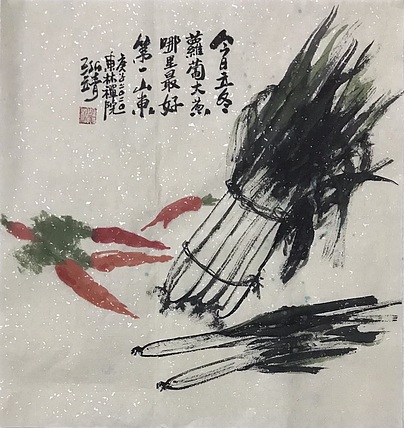 今日立冬
蘿蔔大蔥
哪里最好
第一山東
庚子二〇二〇
東林禪院